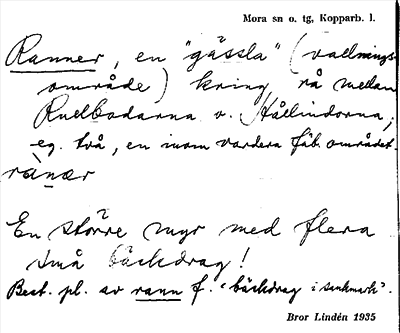 Mora sn o. tg, Kopparb. l.
Ranner, en "gässla" (vallnings-
område) kring rå mellan
Ruelbodarna o. Hållindorna;
eg. två, en inom vardera fäb.området.
rànær
En större myr med flera
små bäckdrag!
Best. pl. av rann f. "bäckdrag i sankmark".
Bror Lindén 1935